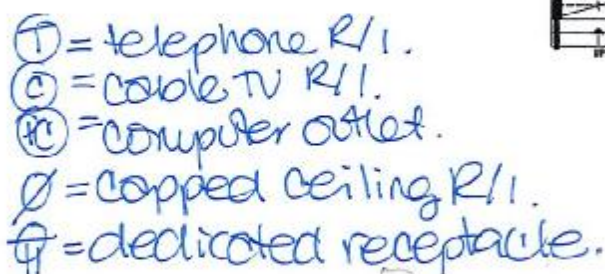 Ⓣ = telephone R/I.
Ⓒ = cable TV R/I.
= computer outlet.
Ø = capped ceiling R/I.
= dedicated receptacle.
UP